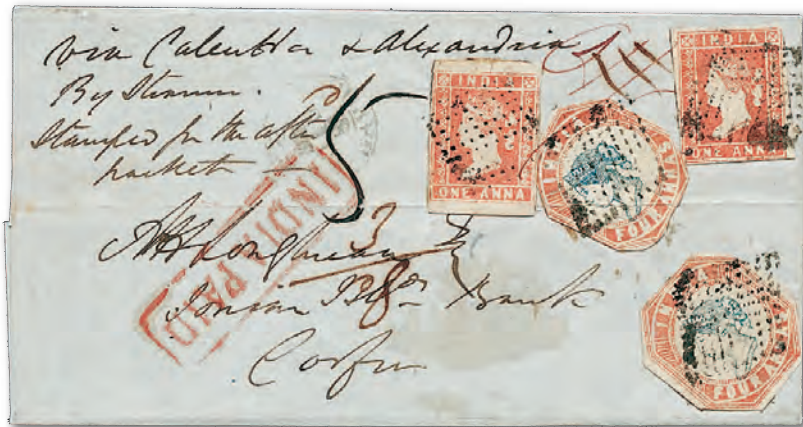 via Calcutta & Alexandria
By Steamer.
Stamped for the after
packet
5
INDIA
ONE ANNA
INDIA
ONE ANNA
INDIA
FOUR ANNAS
INDIA
FOUR ANNAS
INDIA PAID
Ionian Bank
Corfu